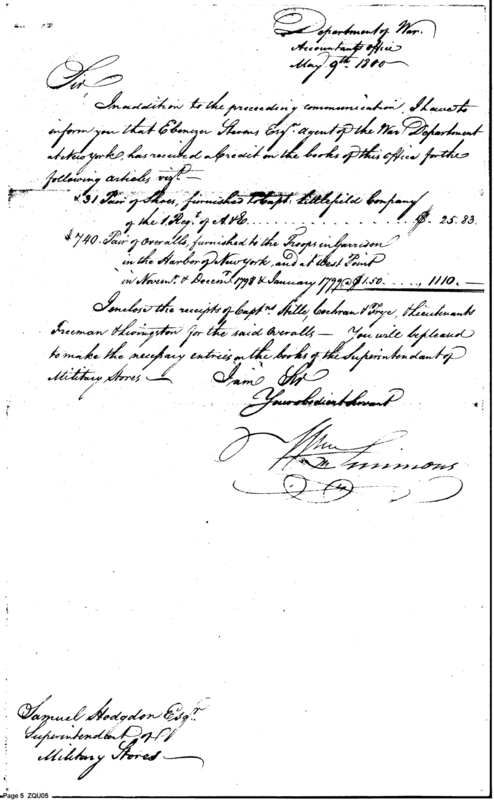 Department of War.
Accountants Office
May 9th. 1800
Sir
In addition to the preceeding communication, I have to
inform you that Ebenezer Stevens Esqr. agent of the War Department
at New York, has received a Credit on the books of this office for the
following articles vizt.
31 Pair of Shoes, furnished to Capt. Littlefield Company
of the 1. Regt. of A & E. . . . . . . . . . . . . $. 25.83.
740. Pair of Overalls, furnished to the Troops in Garrison
in the Harbor of New York, and at West Point
in Novemr. & Decemr. 1798 & January 1799 @ $1.50 . . . . . , 1110. —
I enclose the receipts of Captns. Stille, Cochran & Frye, & Lieutenants
Freeman & Livingston for the said Overalls — You will be pleased
to make the necessary entries on the books of the Superintendant of
Military Stores — I am Sir
Your obedient Servant
Wm Simmons
Samuel Hodgdon Esqr.
Superintendent of
Military Stores —
Page 5 ZQU05